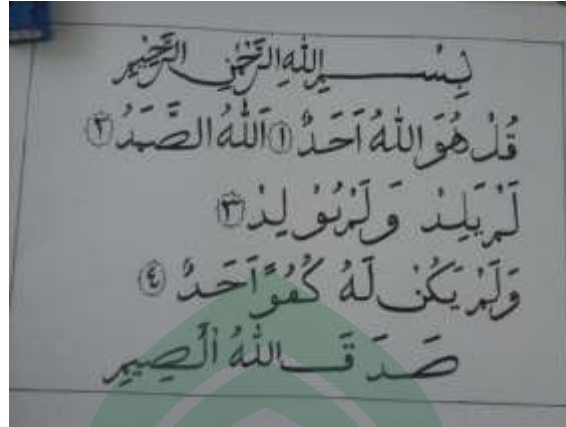 بِسْــــمِ اللهِ الرَّحْمٰنِ الرَّحِيْمِ
قُلْ هُوَ اللهُ اَحَدٌ ١ اَللهُ الصَّمَدُ ٢
لَمْ يَلِدْ وَلَمْ يُوْلِدْ ٣
وَلَمْ يَكُنْ لَهُ كُفُوًا اَحَدٌ ٤
صَدَقَ اللهُ